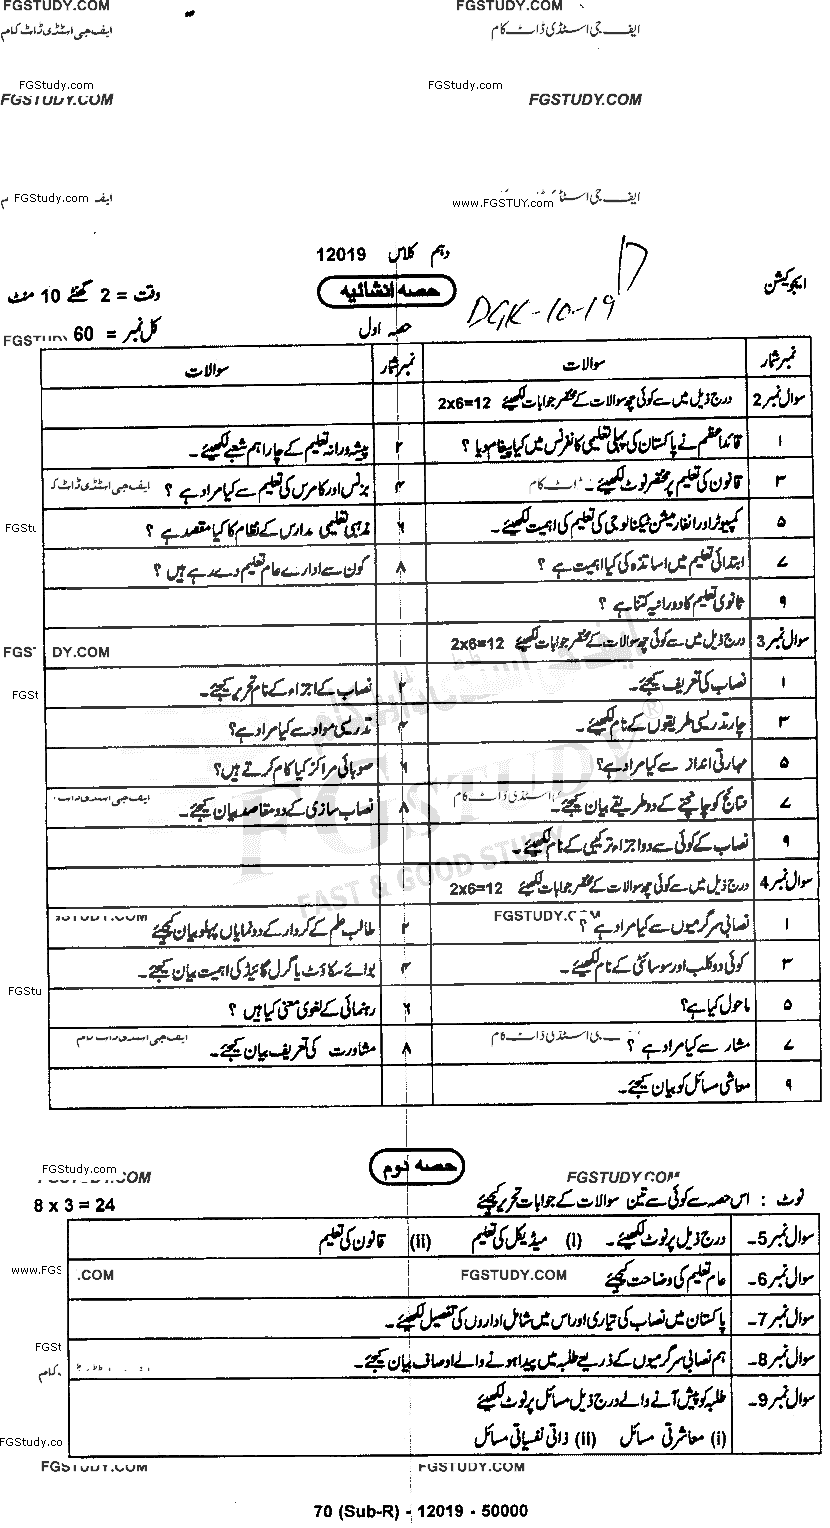 FGSTUDY.COM FGSTUDY.COM
ایف جی اسٹڈی ڈاٹ کام ایف جی اسٹڈی ڈاٹ کام
FGStudy.com FGStudy.com
FGSTUDY.COM FGSTUDY.COM
FGStudy.com www.FGSTUY.com
دہم کلاس 12019
ایجوکیشن DGK-10-19 حصہ انشائیہ وقت = 2 گھنٹے 10 منٹ
حصہ اول کل نمبر = 60
نمبر شمار سوالات نمبر شمار سوالات
سوال نمبر 2 درج ذیل میں سے کوئی چھ سوالات کے مختصر جوابات لکھیئے 2x6=12
۱ قائداعظم نے پاکستان کی پہلی تعلیمی کانفرنس میں کیا پیغام دیا ؟ ۲ پیشہ ورانہ تعلیم کے چار اہم شعبے لکھیئے۔
۳ قانون کی تعلیم پر مختصر نوٹ لکھیئے۔ ۴ بزنس اور کامرس کی تعلیم سے کیا مراد ہے ؟
۵ کمپیوٹر اور انفارمیشن ٹیکنالوجی کی تعلیم کی اہمیت لکھیئے۔ ۶ مذہبی تعلیمی مدارس کے نظام کا کیا مقصد ہے ؟
۷ ابتدائی تعلیم میں اساتذہ کی کیا اہمیت ہے ؟ ۸ کون سے ادارے عام تعلیم دے رہے ہیں ؟
۹ ثانوی تعلیم کا دورانیہ کتنا ہے ؟
سوال نمبر 3 درج ذیل میں سے کوئی چھ سوالات کے مختصر جوابات لکھیئے 2x6=12
۱ نصاب کی تعریف کیجئے۔ ۲ نصاب کے اجزاء کے نام تحریر کیجئے۔
۳ چار تدریسی طریقوں کے نام لکھیئے۔ ۴ تدریسی مواد سے کیا مراد ہے؟
۵ مہارتی انداز سے کیا مراد ہے؟ ۶ صوبائی مراکز کیا کام کرتے ہیں؟
۷ نتائج کو جانچنے کے دو طریقے بیان کیجئے۔ ۸ نصاب سازی کے دو مقاصد بیان کیجئے۔
۹ نصاب کے کوئی سے دو اجزاء ترکیبی کے نام لکھیئے۔
سوال نمبر 4 درج ذیل میں سے کوئی چھ سوالات کے مختصر جوابات لکھیئے 2x6=12
۱ نصابی سرگرمیوں سے کیا مراد ہے ؟ ۲ طالب علم کے کردار کے دو نمایاں پہلو بیان کیجئے
۳ کوئی دو کلب اور سوسائٹی کے نام لکھیئے۔ ۴ بوائے سکاؤٹ یا گرل گائیڈ کی اہمیت بیان کیجئے۔
۵ ماحول کیا ہے؟ ۶ رہنمائی کے لغوی معنی کیا ہیں ؟
۷ مشار سے کیا مراد ہے ؟ ۸ مشاورت کی تعریف بیان کیجئے۔
۹ معاشی مسائل کو بیان کیجئے۔
FGSTUDY
FAST & GOOD STUDY
حصہ دوم
FGStudy.com FGSTUDY.COM
نوٹ : اس حصہ سے کوئی سے تین سوالات کے جوابات تحریر کیجئے 8 x 3 = 24
سوال نمبر 5۔ درج ذیل پر نوٹ لکھیئے۔ (i) میڈیکل کی تعلیم (ii) قانون کی تعلیم
سوال نمبر 6۔ عام تعلیم کی وضاحت کیجئے
FGSTUDY.COM
سوال نمبر 7۔ پاکستان میں نصاب کی تیاری اور اس میں شامل اداروں کی تفصیل لکھیئے۔
سوال نمبر 8۔ ہم نصابی سرگرمیوں کے ذریعے طلبہ میں پیدا ہونے والے اوصاف بیان کیجئے۔
سوال نمبر 9۔ طلبہ کو پیش آنے والے درج ذیل مسائل پر نوٹ لکھیئے
(i) معاشرتی مسائل (ii) ذاتی نفسیاتی مسائل
FGSTUDY.COM FGSTUDY.COM
70 (Sub-R) - 12019 - 50000